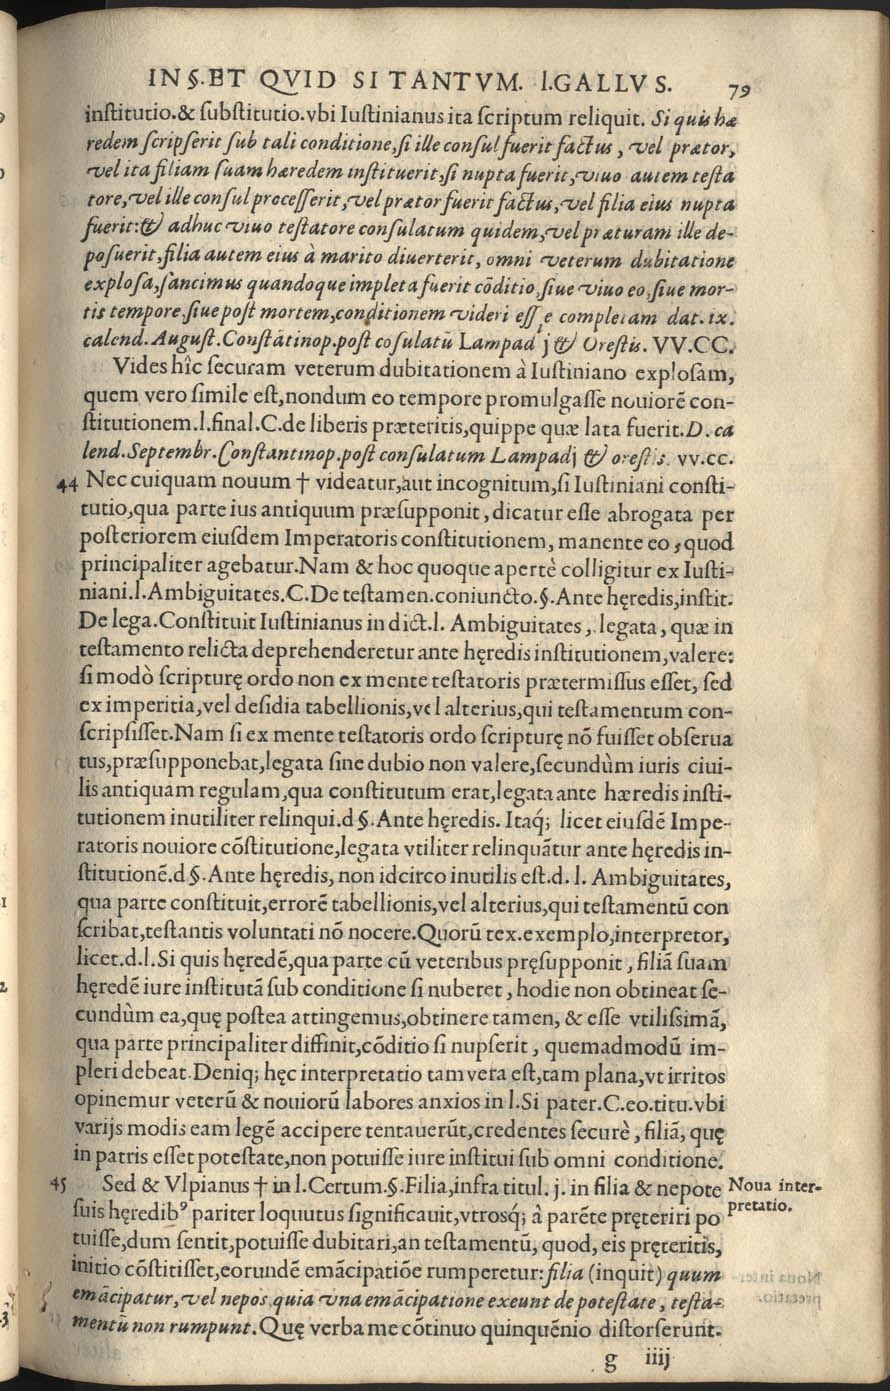 IN §.ET QVID SI TANTVM. l.GALLVS. 79
institutio.& substitutio.vbi Iustinianus ita scriptum reliquit. Si quis hæ
redem scripserit sub tali conditione,si ille consul fuerit factus, vel prætor,
vel ita filiam suam hæredem instituerit,si nupta fuerit,viuo autem testa
tore,vel ille consul processerit,vel prætor fuerit factus,vel filia eius nupta
fuerit:& adhuc viuo testatore consulatum quidem,vel præturam ille de-
posuerit,filia autem eius à marito diuerterit, omni veterum dubitatione
explosa,sancimus quandoque impleta fuerit cõditio,siue viuo eo,siue mor-
tis tempore,siue post mortem,conditionem videri esse completam dat. ix.
calend.August.Constãtinop.post cõsulatũ Lampadij & Orestis. VV.CC.
Vides hîc securam veterum dubitationem à Iustiniano explosam,
quem vero simile est,nondum eo tempore promulgasse nouiorẽ con-
stitutionem.l.final.C.de liberis præteritis,quippe quæ lata fuerit.D. ca
lend.Septembr.Constantinop.post consulatum Lampadij & orestis. vv.cc.
44 Nec cuiquam nouum † videatur,aut incognitum,si Iustiniani consti-
tutio,qua parte ius antiquum præsupponit, dicatur esse abrogata per
posteriorem eiusdem Imperatoris constitutionem, manente eo, quod
principaliter agebatur.Nam & hoc quoque apertè colligitur ex Iusti-
niani.l.Ambiguitates.C.De testamen.coniuncto.§.Ante hęredis,instit.
De lega.Constituit Iustinianus in dict.l. Ambiguitates, legata, quæ in
testamento relicta deprehenderetur ante hęredis institutionem,valere:
si modò scripturę ordo non ex mente testatoris prætermissus esset, sed
ex imperitia,vel desidia tabellionis,vel alterius,qui testamentum con-
scripsisset.Nam si ex mente testatoris ordo scripturę nõ fuisset obserua
tus,præsupponebat,legata sine dubio non valere,secundùm iuris ciui-
lis antiquam regulam,qua constitutum erat,legata ante hæredis insti-
tutionem inutiliter relinqui.d§.Ante hęredis. Itaq́; licet eiusdẽ Impe-
ratoris nouiore cõstitutione,legata vtiliter relinquãtur ante hęredis in-
stitutionẽ.d§.Ante hęredis, non idcirco inutilis est.d. l. Ambiguitates,
qua parte constituit,errorẽ tabellionis,vel alterius,qui testamentũ con
scribat,testantis voluntati nõ nocere.Quorũ tex.exemplo,interpretor,
licet.d.l.Si quis hęredẽ,qua parte cũ veteribus pręsupponit, filiã suam
hęredẽ iure institutã sub conditione si nuberet, hodie non obtineat se-
cundùm ea,quę postea attingemus,obtinere tamen, & esse vtilissimã,
qua parte principaliter diffinit,cõditio si nupserit, quemadmodũ im-
pleri debeat.Deniq; hęc interpretatio tam vera est,tam plana,vt irritos
opinemur veterũ & nouiorũ labores anxios in l.Si pater.C.eo.titu.vbi
varijs modis eam legẽ accipere tentauerũt,credentes securè, filiã, quę
in patris esset potestate,non potuisse iure institui sub omni conditione.
45 Sed & Vlpianus † in l.Certum.§.Filia,infra titul. j. in filia & nepote
Noua inter-
pretatio.
suis hęredibꝰ pariter loquutus significauit,vtrosq́; à parẽte pręteriri po
tuisse,dum sentit,potuisse dubitari,an testamentũ, quod, eis pręteritis,
initio cõstitisset,eorundẽ emãcipatiõe rumperetur:filia (inquit) quum
emãcipatur,vel nepos,quia vna emãcipatione exeunt de potestate, testa-
mentũ non rumpunt.Quę verba me cõtinuo quinquẽnio distorserunt.
g iiij